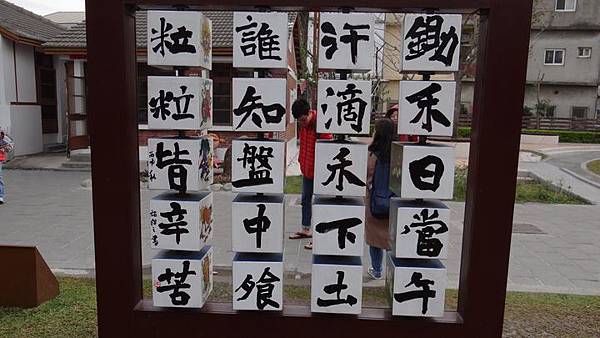 鋤禾日當午
汗滴禾下土
誰知盤中飧
粒粒皆辛苦